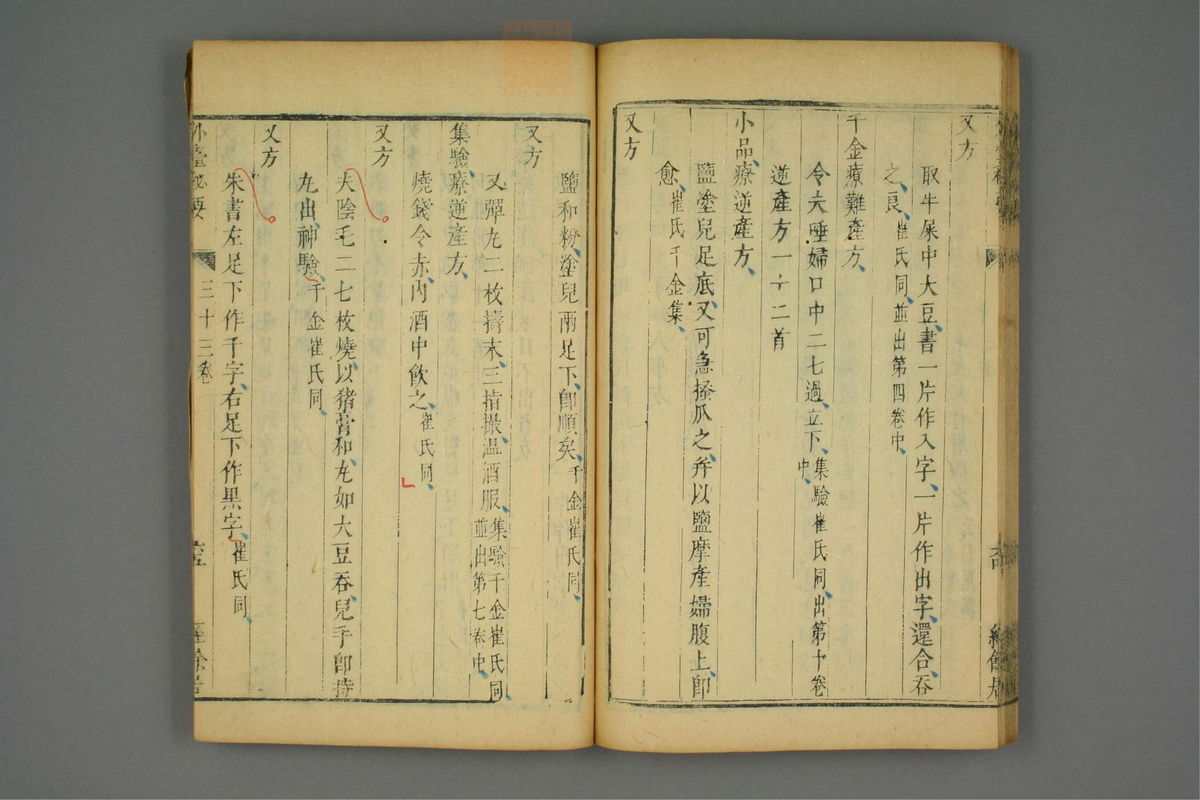 又方
取牛屎中大豆、書一片作入字、一片作出字、還合、吞
之、良、崔氏同、並出第四卷中、
千金療難產方、
令夫唾婦口中二七過、立下、集驗崔氏同、出第十卷
中、
逆產方一十二首
小品療逆產方、
鹽塗兒足底、又可急搔爪之、并以鹽摩產婦腹上、卽
愈、崔氏千金集、
又方
鹽和粉、塗兒兩足下、卽順矣、千金崔氏同、
又方
又彈丸二枚擣末、三指撮、温酒服、集驗千金崔氏同
並出第七卷中、
集驗療逆產方、
燒錢令赤、內酒中飲之、崔氏同、
又方
夫陰毛二七枚燒、以猪膏和、丸如大豆吞、兒手卽持
丸出、神驗、千金崔氏同、
又方
朱書左足下作千字、右足下作黑字、崔氏同、
外臺秘要
三十三卷
六五
經餘居